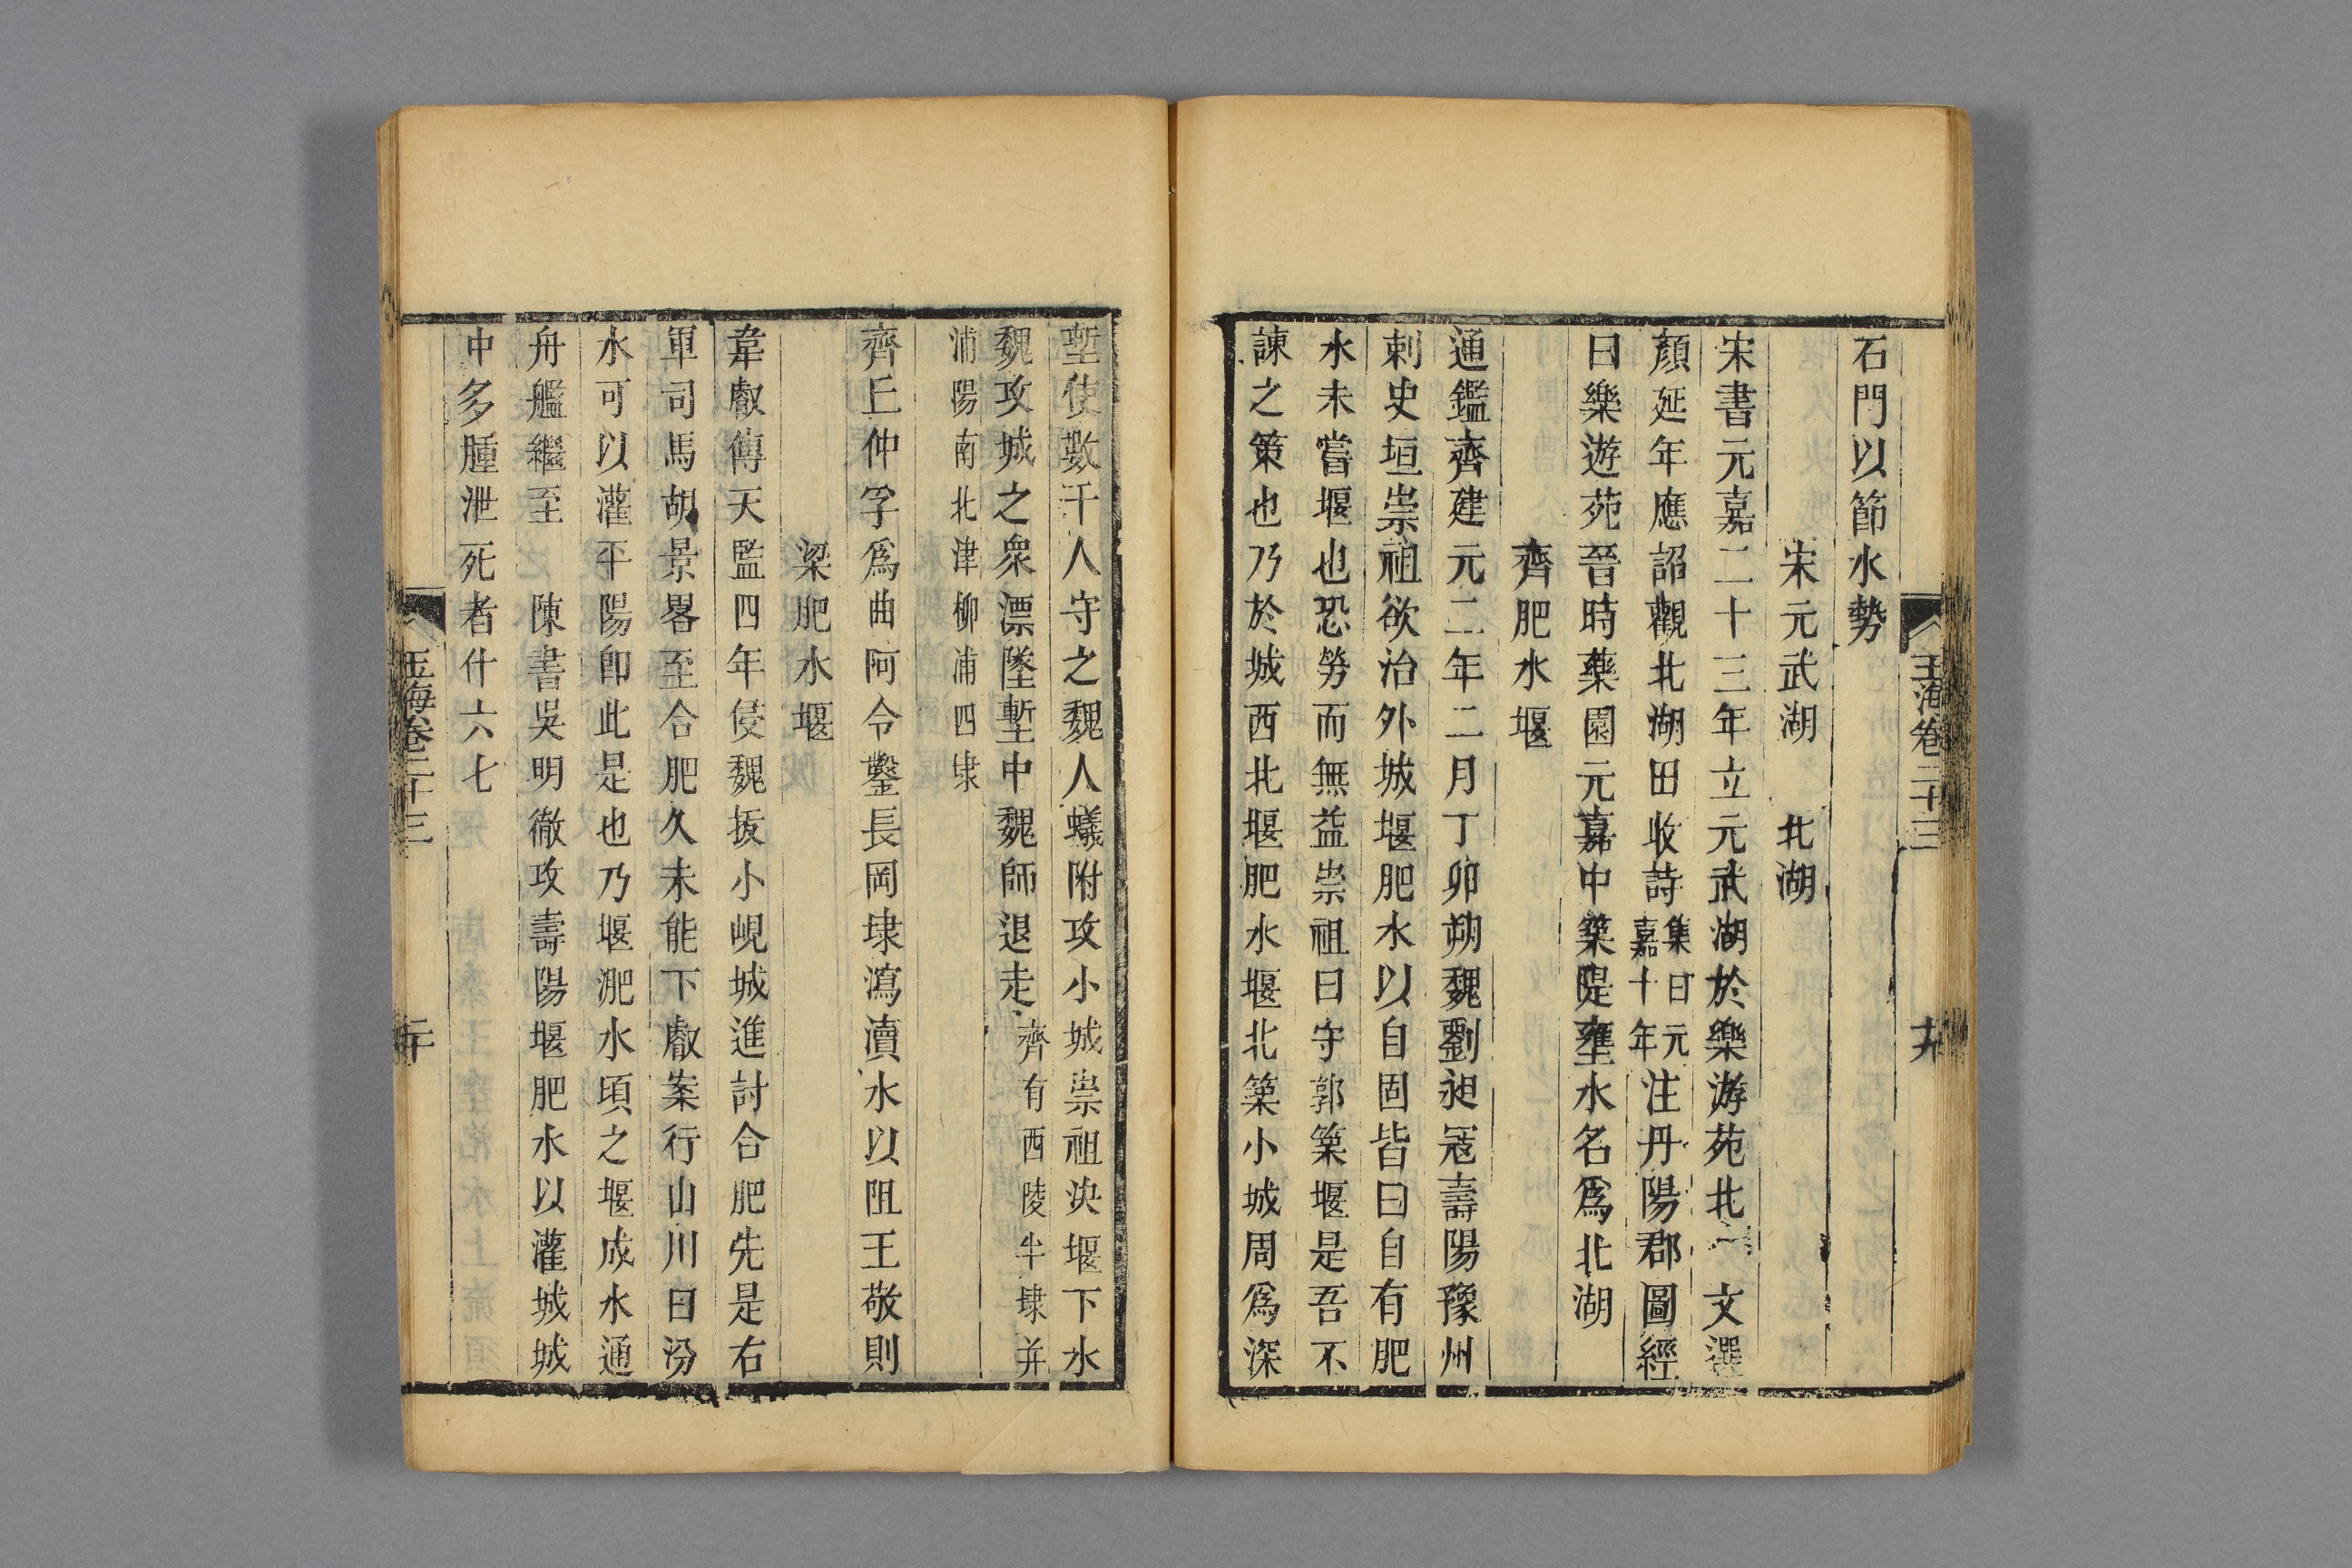 石門以節水勢
宋元武湖 北湖
宋書元嘉二十三年立元武湖於樂游苑北 文選
顏延年應詔觀北湖田收詩集曰元嘉十年注丹陽郡圖經
曰樂遊苑晉時藥園元嘉中築隄壅水名爲北湖
齊肥水堰
通鑑齊建元二年二月丁卯朔魏劉昶寇壽陽豫州
刺史垣崇祖欲治外城堰肥水以自固皆曰自有肥
水未嘗堰也恐勞而無益崇祖曰守郭築堰是吾不
諫之策也乃於城西北堰肥水堰北築小城周爲深
玉海卷二十三
塹使數千人守之魏人蟻附攻小城崇祖决堰下水
魏攻城之衆漂墜塹中魏師退走 齊有西陵牛埭并
浦陽南北津柳浦四埭
齊丘仲孚爲曲阿令鑿長岡埭瀉瀆水以阻王敬則
梁肥水堰
韋叡傳天監四年侵魏拔小峴城進討合肥先是右
軍司馬胡景畧至合肥久未能下叡案行山川曰汾
水可以灌平陽卽此是也乃堰淝水頃之堰成水通
舟艦繼至 陳書吳明徹攻壽陽堰肥水以灌城城
中多腫泄死者什六七
玉海卷二十三
二十